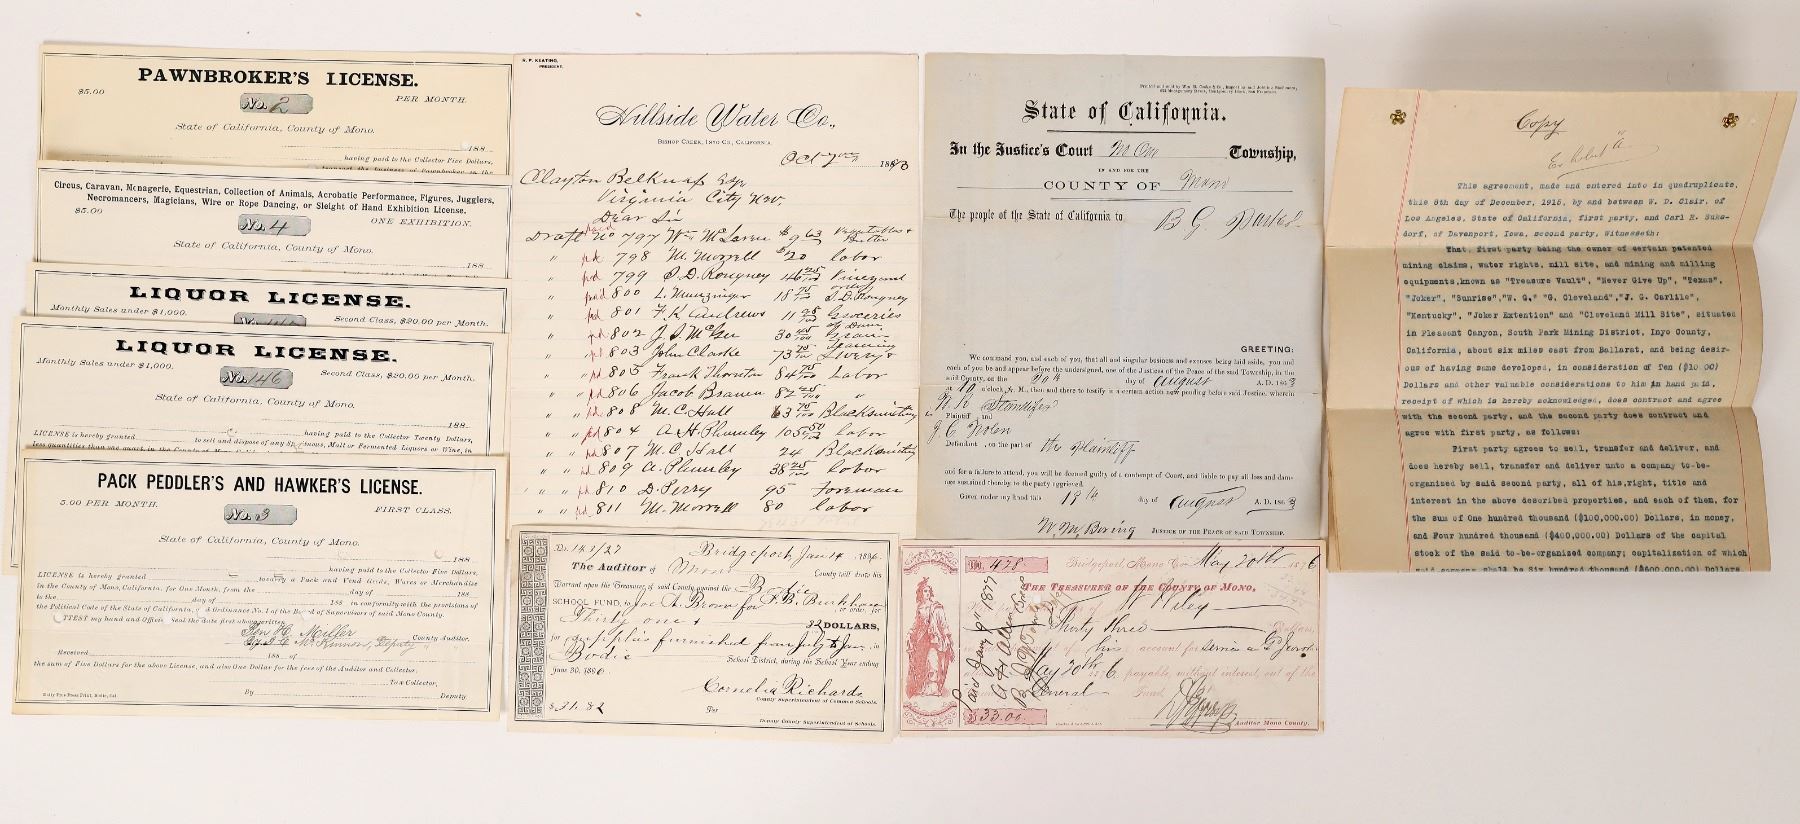 PAWNBROKER'S LICENSE.
$5.00
No. 2
PER MONTH.
State of California, County of Mono.
188
having paid to the Collector Five Dollars,
Circus, Caravan, Menagerie, Equestrian, Collection of Animals, Acrobatic Performance, Figures, Jugglers,
Necromancers, Magicians, Wire or Rope Dancing, or Sleight of Hand Exhibition License.
$5.00
ONE EXHIBITION.
No. 4
State of California, County of Mono.
188
LIQUOR LICENSE.
Monthly Sales under $1,000.
Second Class, $20.00 per Month.
LIQUOR LICENSE.
Monthly Sales under $1,000.
No. 146
Second Class, $20.00 per Month.
State of California, County of Mono.
188
LICENSE is hereby granted having paid to the Collector Twenty Dollars,
to sell and dispose of any Spirituous, Malt or Fermented Liquors or Wine, in
PACK PEDDLER'S AND HAWKER'S LICENSE.
5.00 PER MONTH.
No. 3
FIRST CLASS.
State of California, County of Mono.
188
LICENSE is hereby granted having paid to the Collector Five Dollars,
to carry a Pack and Vend Goods, Wares or Merchandise
in the County of Mono, California, for One Month, from the day of 188
to the day of 188 in conformity with the provisions of
the Political Code of the State of California, and Ordinance No. 1 of the Board of Supervisors of said Mono County.
ATTEST my hand and Official Seal the date first above written
Geo H. Miller
County Auditor.
McKinnon, Deputy
Received 188 of
the sum of Five Dollars for the above License, and also One Dollar for the fees of the Auditor and Collector.
Tax Collector,
By Deputy.
R. F. KEATING,
PRESIDENT.
Hillside Water Co.,
BISHOP CREEK, INYO CO., CALIFORNIA.
Oct 7th 1883
Clayton Belknap Esq
Virginia City Nev.
Dear Sir
Draft No 797 Wm McLaren $9 63 Vegetables & Butter
" pd 798 M. Morrell $20 labor
" pd 799 S. D. Rougney
" pd 800 L. Munzinger 18 75/100
" pd 801 F. K. Andrews 11 Groceries
" pd 802 J. S. McGee 30 45/100 Grain
" pd 803 John Clarke 73 75/100 Livery &
" pd 805 Frank Thornton 84 75/100 Labor
" pd 806 Jacob Brown 82 25/100 "
" pd 808 M. C. Hall 63 75/100 Blacksmithing
" " pd 804 A. H. Plumley 105 50/100 labor
" " pd 807 M. C. Hall 24 Blacksmithing
" " pd 809 A. Plumley 38 25/100 labor
" " pd 810 D. Perry 95 Foreman
" " pd 811 M. Morrell 80 labor
No. 143/27
Bridgeport, Jan 14 1886.
The Auditor of Mono County will draw his
Warrant upon the Treasurer of said County against the Bodie
SCHOOL FUND, to Jos A. Brown for F. B. Burkham or order, for
Thirty one & 82 DOLLARS,
for supplies furnished from July to Jan, in
Bodie School District, during the School Year ending
June 30, 1886.
Cornelia Richards
County Superintendent of Common Schools.
Per
$31.82
Deputy County Superintendent of Schools.
State of California.
In the Justice's Court Mone Township,
IN AND FOR THE
COUNTY OF Mono
The people of the State of California to B G Parker
GREETING:
We command you, and each of you, that all and singular business and excuses being laid aside, you and
each of you be and appear before the undersigned, one of the Justices of the Peace of the said Township, in the
said County, on the 20th day of August A. D. 1863
at 10 o'clock, M., then and there to testify in a certain action now pending before said Justice, wherein
N. K. Standifer
is Plaintiff and
J. C. Nolen
Defendant, on the part of the Plaintiff
and for a failure to attend, you will be deemed guilty of a contempt of Court, and liable to pay all loss and dam-
age sustained thereby to the party aggrieved.
Given under my hand this 19th day of August A. D. 1863
W. M. Boring JUSTICE OF THE PEACE OF SAID TOWNSHIP.
No. 478
Bridgeport, Mono Co. May 20th 1876
THE TREASURER OF THE COUNTY OF MONO,
Wiley
Thirty three Dollars,
his account for services as Jurors
May 20th 1876, payable, without interest, out of the
General Fund
$33.00
Auditor Mono County.
Paid Jany 9th 1877
Copy
Exhibit "A"
This agreement, made and entered into in quadruplicate,
this 8th day of December, 1915, by and between W. D. Clair, of
Los Angeles, State of California, first party, and Carl R. Suks-
dorf, of Davenport, Iowa, second party, Witnesseth:
That, first party being the owner of certain patented
mining claims, water rights, mill site, and mining and milling
equipments, known as "Treasure Vault", "Never Give Up", "Texas",
"Joker", "Sunrise", "W. G." "G. Cleveland", "J. G. Carlile",
"Kentucky", "Joker Extention" and "Cleveland Mill Site", situated
in Pleasant Canyon, South Park Mining District, Inyo County,
California, about six miles east from Ballarat, and being desir-
ous of having same developed, in consideration of Ten ($10.00)
Dollars and other valuable considerations to him in hand paid,
receipt of which is hereby acknowledged, does contract and agree
with the second party, and the second party does contract and
agree with first party, as follows:
First party agrees to sell, transfer and deliver, and
does hereby sell, transfer and deliver unto a company to-be-
organized by said second party, all of his right, title and
interest in the above described properties, and each of them, for
the sum of One hundred thousand ($100,000.00) Dollars, in money,
and Four hundred thousand ($400,000.00) Dollars of the capital
stock of the said to-be-organized company; capitalization of which
said company shall be Six hundred thousand ($600,000.00) Dollars